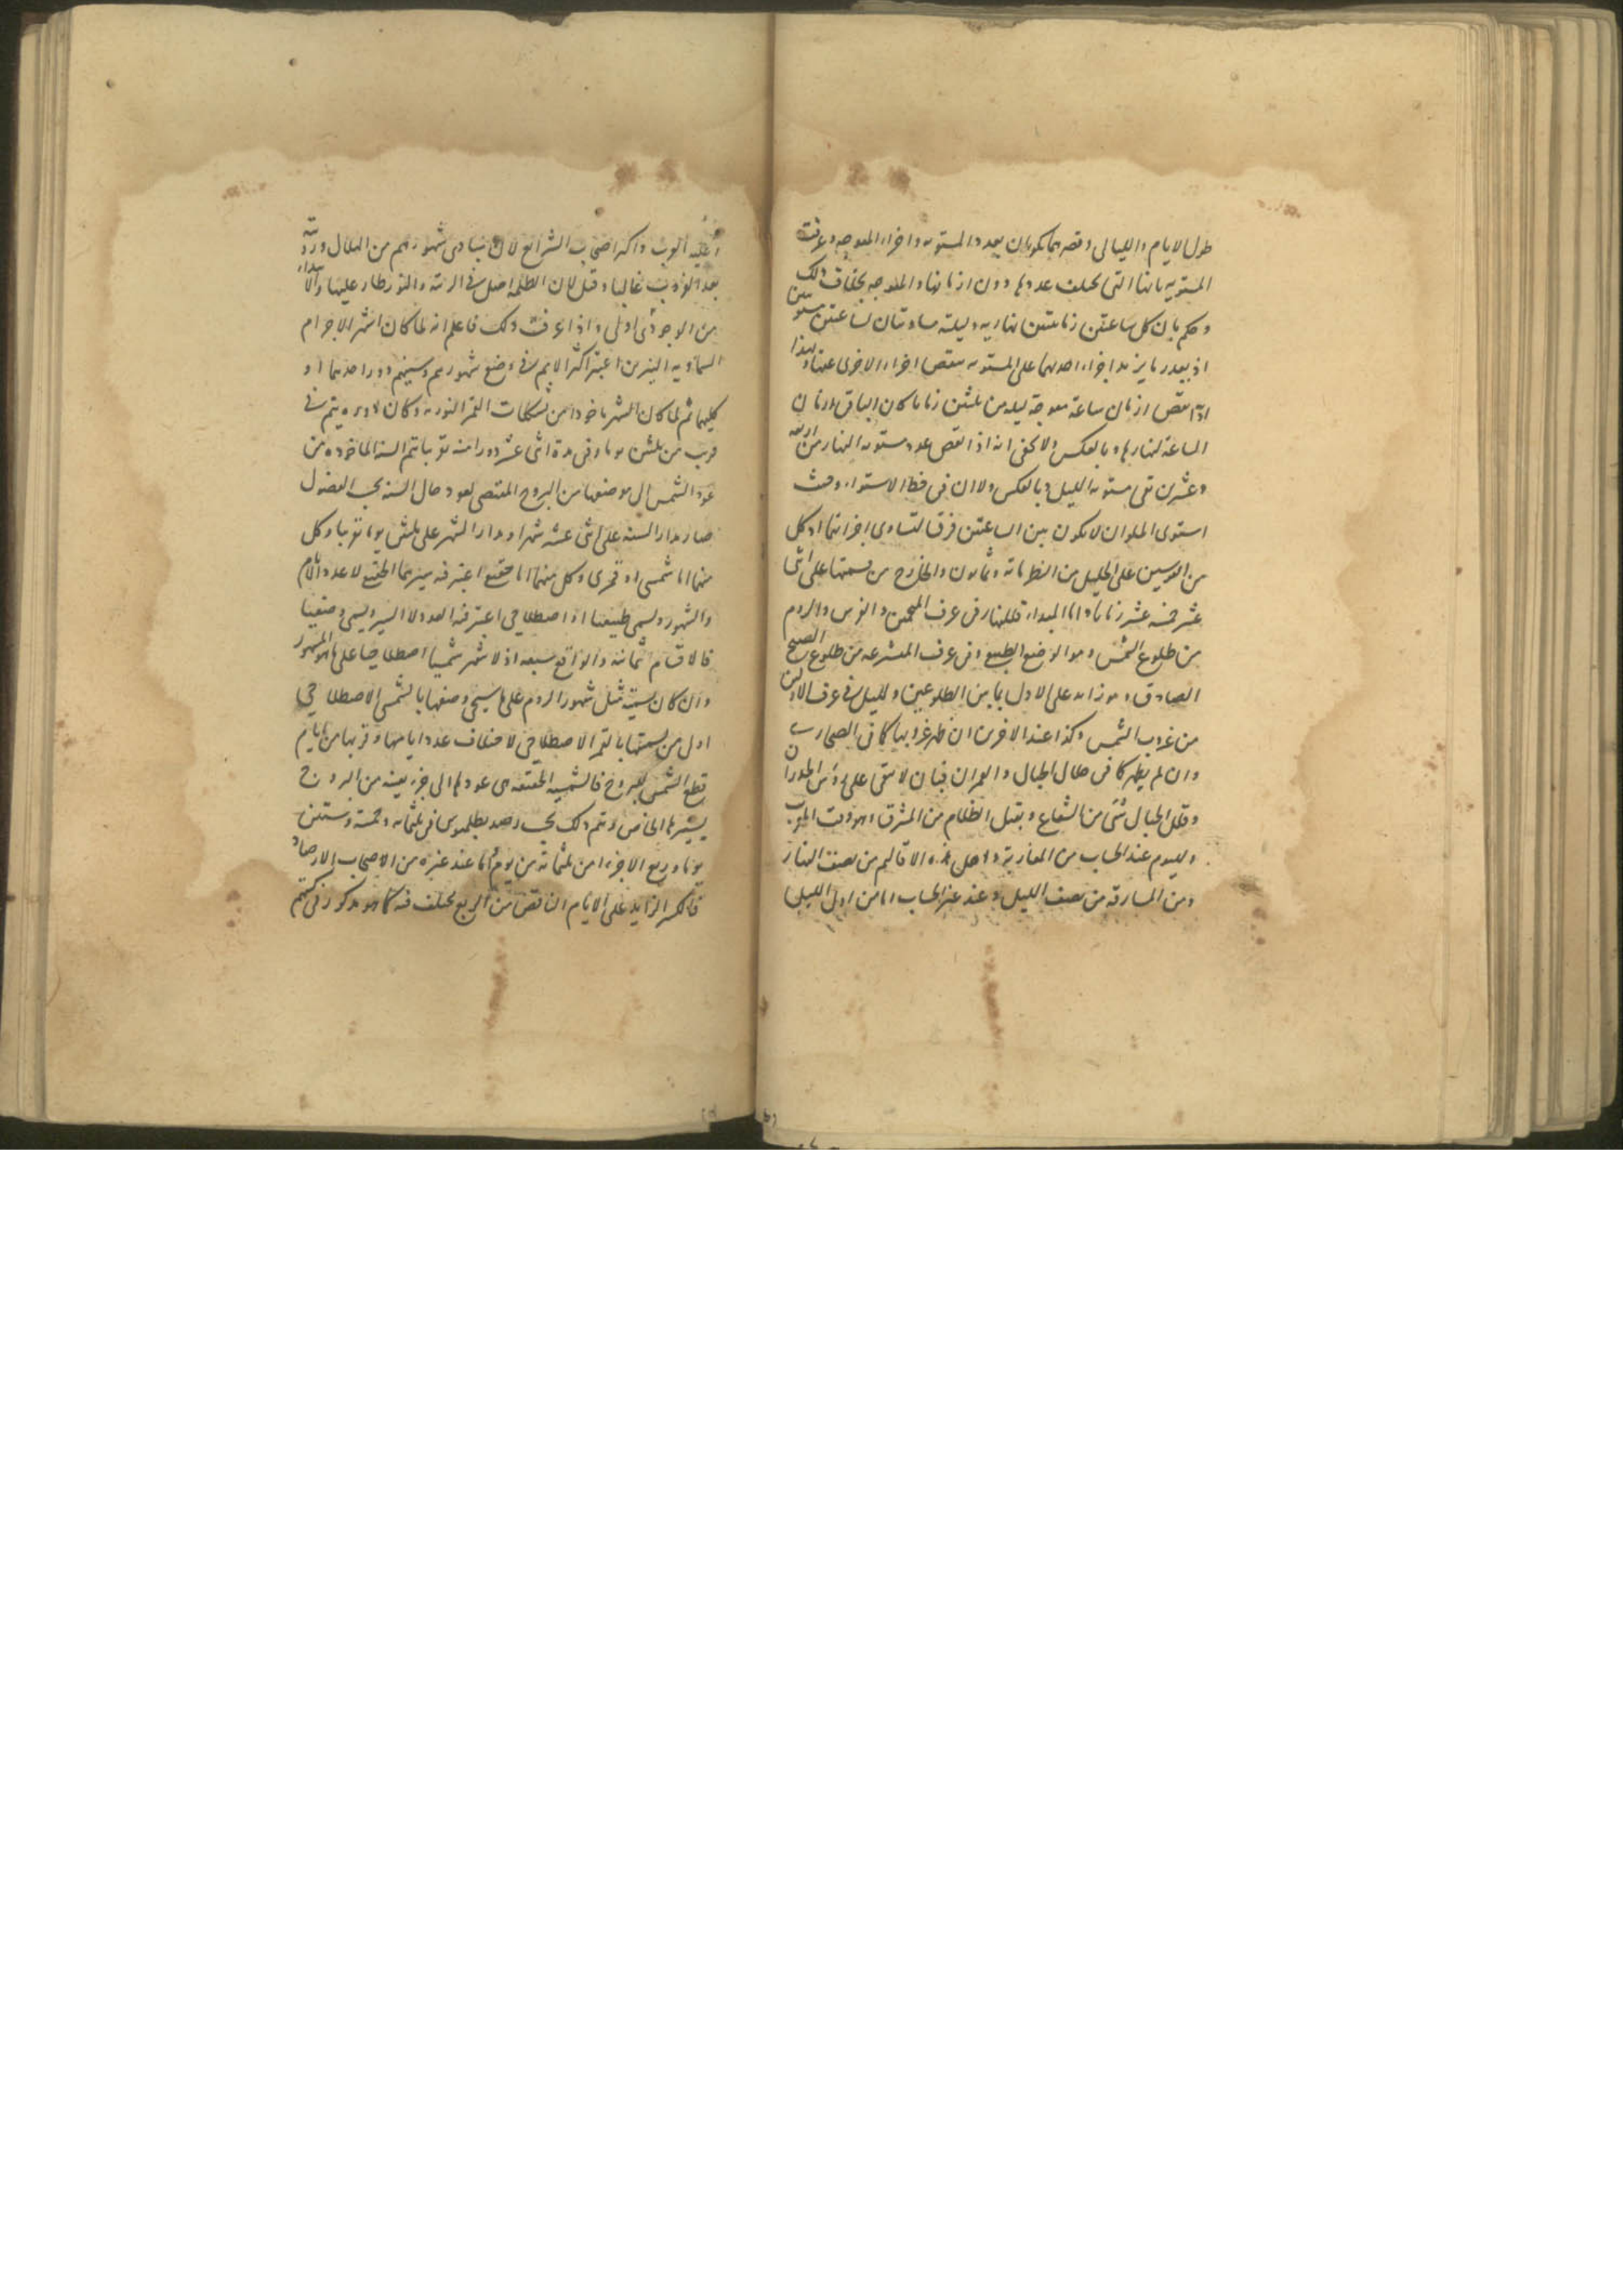 طول الايام والليالى وقصرهما يكونان بعدد المستويه واجزاء المعوجه وعرفت
المستويه بانها التى يختلف عددها دون ازمانها والمعوجه بخلاف ذلك
وحكم بان كل ساعتين زمانيتين نهاريه وليليه مساويتان لساعتين مستويتين
اذ بقدر ما يزيد اجزاء احديهما على المستويه ينقص اجزاء الاخرى عنها ولهذا
اذا نقص ازمان ساعة معوجة ليليه من ثلثين زمانا كان الباقى ازمان
الساعة لنهارها وبالعكس ولا يخفى انه اذا نقص عدد مستويه النهار من اربعه
وعشرين بقى مستويه الليل وبالعكس ولان فى خط الاستواء وحيث
استوى الملوان لا يكون بين الساعتين فرق لتساوى اجزائهما اذ كل
من القوسين على الجليل من النظر مائه وثمانون والخارج من قسمتها على اثنا
عشر خمسه عشر زمانا واما المبداء فللنهار فى عرف المنجمين والفرس والروم
من طلوع الشمس وهو الوضع الطبيعى وفى عرف المتشرعه من طلوع الصبح
الصادق وهو زائد على الاول بما بين الطلوعين ولليل فى عرف الاولين
من غروب الشمس وكذا عند الاخرين ان ظهر غروبها كما فى الصحارى
وان لم يظهر كما فى خلال الجبال والعمران فبان لا يبقى على رؤس الجدران
وقلل الجبال شئ من الشعاع ويقبل الظلام من المشرق وهو وقت المغرب
ولليوم عند الحساب من المغاربة واهل هذه الاقاليم من نصف النهار
ومن المشارقه من نصف الليل وعند غير الحساب اما من اول الليل
وعليه العرب واكثر اصحاب الشرايع لان مبادى شهورهم من الهلال ورؤيته
بعد الغروب غالبا وقيل لان الظلمه اصل فى الرتبه والنور طار عليها والابتداء
من الوجودى اولى واذا عرفت ذلك فاعلم انه لما كان اشهر الاجرام
السماويه النيرين اعتبر اكثر الامم فى وضع شهورهم وسنينهم دورا احدهما او
كليهما ثم لما كان الشهر ماخوذا من تشكلات القمر النوريه وكان دوره يتم فى
قريب من ثلثين يوما وفى مدة اثنى عشر دورا منه تقريبا تتم السنه الماخوذه من
عود الشمس الى موضعها من البروج المقتضى لعود حال السنه بحسب الفصول
صار مدار السنه على اثنى عشر شهرا ومدار الشهر على ثلثين يوما تقريبا وكل
منهما اما شمسى او قمرى وكل منهما اما حقيقى اعتبر فيه سيرهما الحقيقى لا عدد الايام
والشهور ويسمى طبيعيا او اصطلاحى اعتبر فيه العدد لا السير ويسمى وضعيا
فالاقسام ثمانيه والواقع سبعه اذ لا شهر شمسيا اصطلاحيا على ما هو المشهور
وان كان تسمية مثل شهور الروم على ما سيجئ وصفها بالشمسى الاصطلاحى
اولى من تسميتها بالقمر الاصطلاحى لاختلاف عدد ايامها وقربها من ايام
قطع الشمس للبروج فالشمسيه الحقيقيه هى عودها الى جزء بعينه من البروج
بسيرها الخاص وتتم ذلك بحسب رصد بطلميوس فى ثلثمائه وخمسة وستين
يوما وربع الا جزءا من ثلثمائة من يوم واما عند غيره من اصحاب الارصاد
فالكسر الزايد على الايام الناقص من الربع يختلف فيه كما هو مذكور فى كتبهم